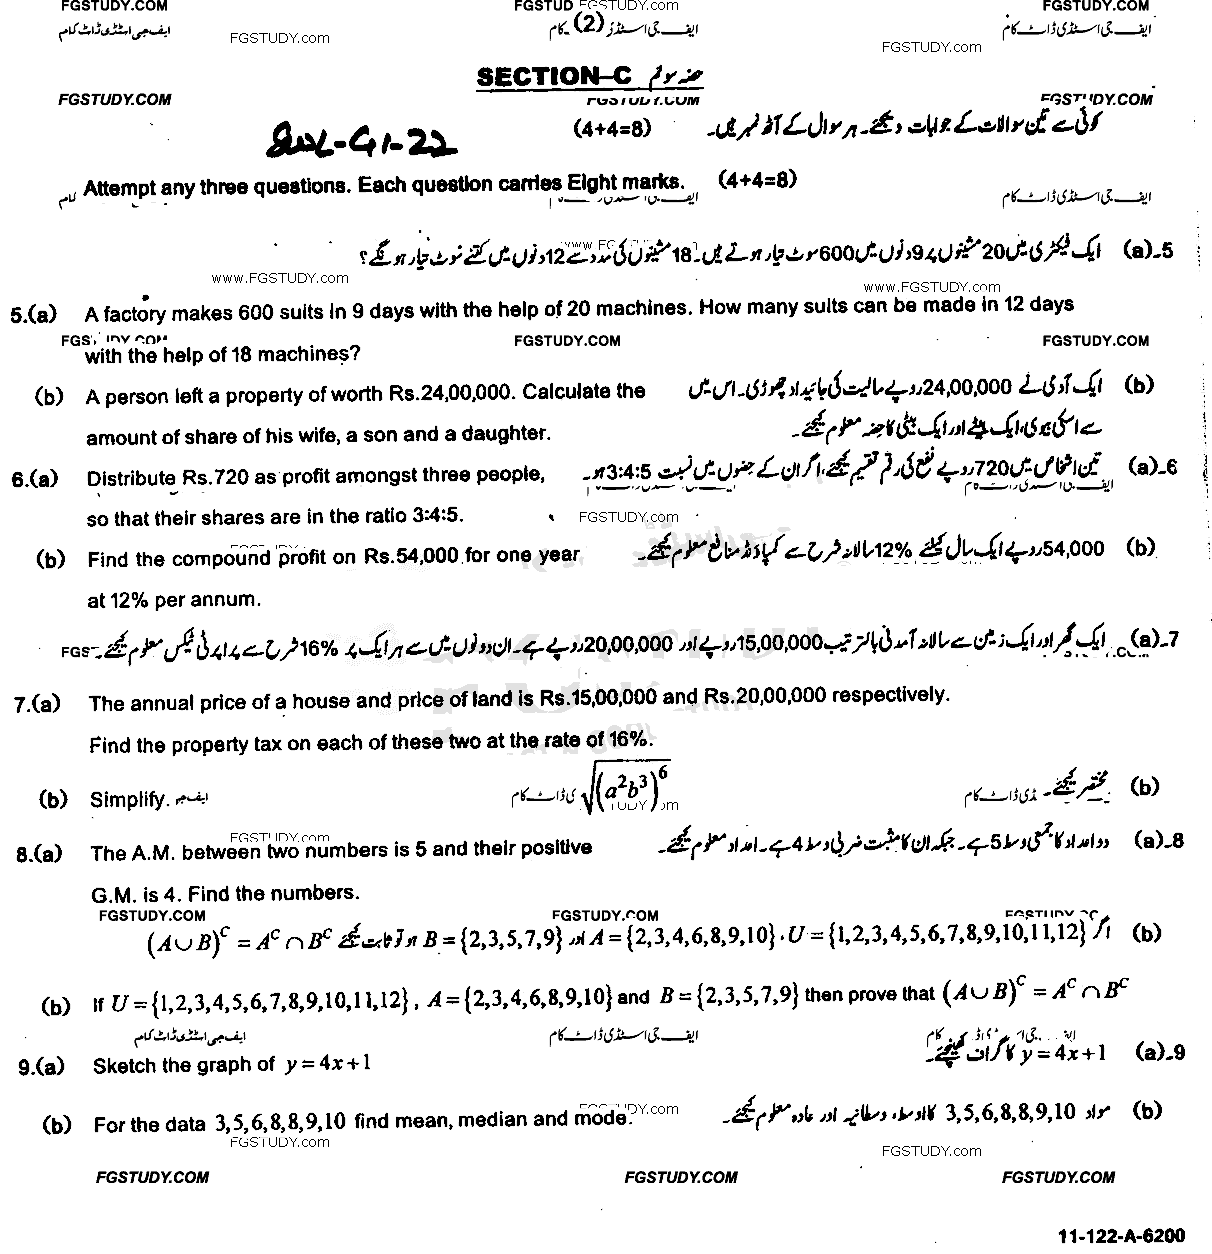 FGSTUDY.COM FGSTUD FGSTUDY.com FGSTUDY.COM
ایف جی اسٹڈی ڈاٹ کام FGSTUDY.com (2) ایف جی اسٹڈی ڈاٹ کام
FGSTUDY.com
SECTION–C حصہ سوئم
FGSTUDY.COM FGSTUDY.COM FGSTUDY.COM
کوئی سے تین سوالات کے جوابات دیجئے۔ ہر سوال کے آٹھ نمبر ہیں۔ (4+4=8)
-G1-22
Attempt any three questions. Each question carries Eight marks. (4+4=8)
ایف جی اسٹڈی ڈاٹ کام
5۔(a) ایک فیکٹری میں 20 مشینوں پر 9 دنوں میں 600 سوٹ تیار ہوتے ہیں۔ 18 مشینوں کی مدد سے 12 دنوں میں کتنے سوٹ تیار ہونگے؟
www.FGSTUDY.com www.FGSTUDY.com
5.(a) A factory makes 600 suits in 9 days with the help of 20 machines. How many suits can be made in 12 days
FGSTUDY.COM FGSTUDY.COM FGSTUDY.COM
with the help of 18 machines?
(b) A person left a property of worth Rs.24,00,000. Calculate the
(b) ایک آدمی نے 24,00,000 روپے مالیت کی جائیداد چھوڑی۔ اس میں
amount of share of his wife, a son and a daughter.
سے اسکی بیوی، ایک بیٹے اور ایک بیٹی کا حصہ معلوم کیجئے۔
6.(a) Distribute Rs.720 as profit amongst three people,
6۔(a) تین اشخاص میں 720 روپے نفع کی رقم تقسیم کیجئے، اگر ان کے حصوں میں نسبت 3:4:5 ہو۔
so that their shares are in the ratio 3:4:5.
FGSTUDY.com
(b) Find the compound profit on Rs.54,000 for one year
(b) 54,000 روپے ایک سال کیلئے 12% سالانہ شرح سے کمپاؤنڈ منافع معلوم کیجئے۔
at 12% per annum.
7۔(a) ایک گھر اور ایک زمین سے سالانہ آمدنی بالترتیب 15,00,000 روپے اور 20,00,000 روپے ہے۔ ان دونوں میں سے ہر ایک پر 16% شرح سے پراپرٹی ٹیکس معلوم کیجئے۔
7.(a) The annual price of a house and price of land is Rs.15,00,000 and Rs.20,00,000 respectively.
Find the property tax on each of these two at the rate of 16%.
(b) Simplify. √(a²b³)⁶ (b) مختصر کیجئے۔
FGSTUDY.com
8.(a) The A.M. between two numbers is 5 and their positive
8۔(a) دو اعداد کا جمعی وسط 5 ہے۔ جبکہ ان کا مثبت ضربی وسط 4 ہے۔ اعداد معلوم کیجئے۔
G.M. is 4. Find the numbers.
FGSTUDY.COM FGSTUDY.COM FGSTUDY.COM
(b) اگر U = {1,2,3,4,5,6,7,8,9,10,11,12} ، A = {2,3,4,6,8,9,10} اور B = {2,3,5,7,9} ہو تو ثابت کیجئے (A∪B)ᶜ = Aᶜ∩Bᶜ
(b) If U = {1,2,3,4,5,6,7,8,9,10,11,12}, A = {2,3,4,6,8,9,10} and B = {2,3,5,7,9} then prove that (A∪B)ᶜ = Aᶜ∩Bᶜ
ایف جی اسٹڈی ڈاٹ کام ایف جی اسٹڈی ڈاٹ کام
9.(a) Sketch the graph of y = 4x+1
9۔(a) y = 4x+1 کا گراف کھینچئے۔
(b) For the data 3,5,6,8,8,9,10 find mean, median and mode.
(b) مواد 3,5,6,8,8,9,10 کا اوسط، وسطانیہ اور عادہ معلوم کیجئے۔
FGSTUDY.com FGSTUDY.com
FGSTUDY.com
FGSTUDY.COM FGSTUDY.COM FGSTUDY.COM
11-122-A-6200